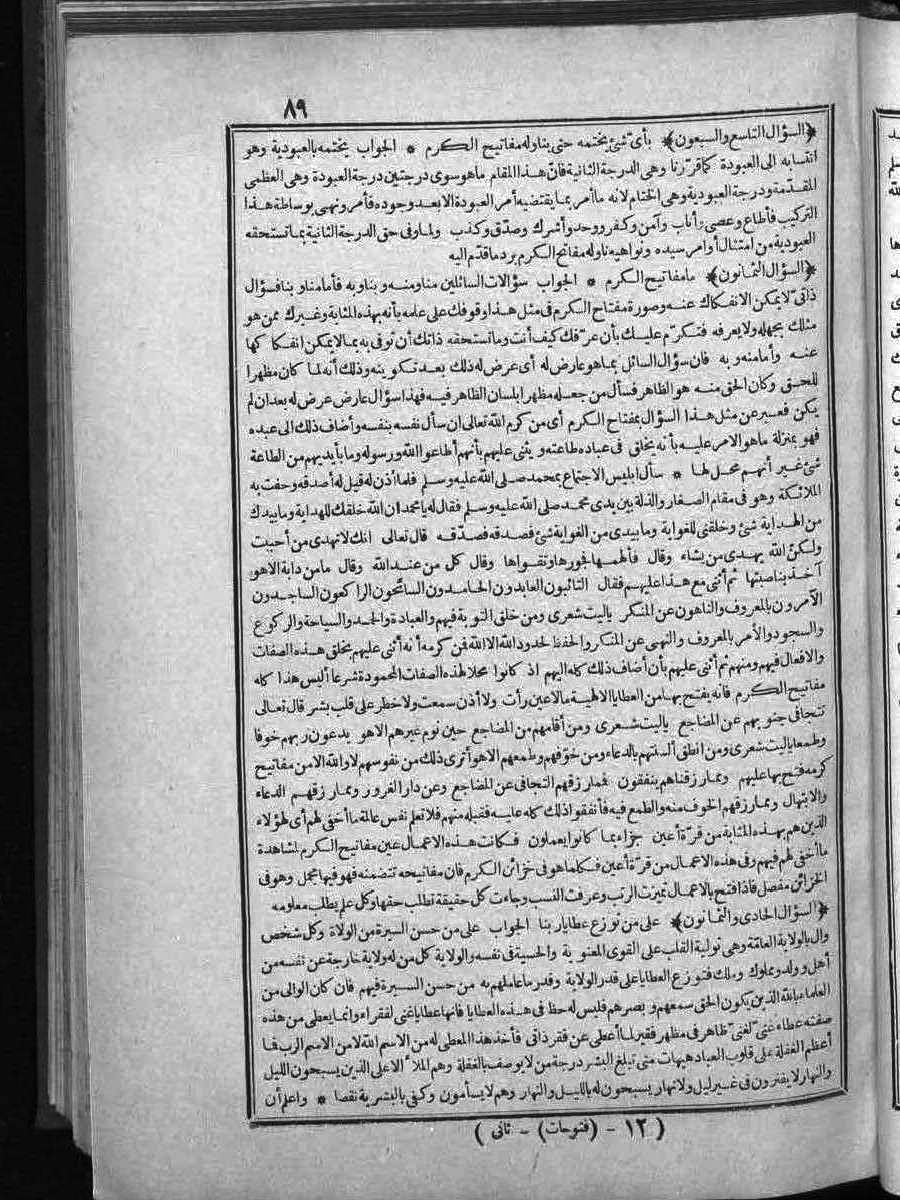 ٨٩
﴿السؤال التاسع والسبعون﴾ بأى شئ يختمه حتى يناوله مفاتيح الكرم * الجواب يختمه بالعبودية وهو
انتسابه الى العبودة كما قررنا وهى الدرجة الثانية فان هذا المقام ما هو سوى درجتين درجة العبودة وهى العظمى
المقدمة ودرجة العبودية وهى الختام لانه ما أمر بما يقتضيه أمر العبودة الا بعد وجوده فأمر ونهى بوساطة هذا
التركيب فأطاع وعصى وأناب وآمن وكفر ووحد وأشرك وصدق وكذب ولما وفى حق الدرجة الثانية بما تستحقه
العبودية من امتثال أوامر سيده ونواهيه ناوله مفاتح الكرم برد ما قدم اليه
﴿السؤال الثمانون﴾ ما مفاتيح الكرم * الجواب سؤالات السائلين منا ومنه وبنا وبه فأما منا وبنا فسؤال
ذاتى لا يمكن الانفكاك عنه وصورة مفتاح الكرم فى مثل هذا وقوفك على علمه بأنه بهذه المثابة وغيرك ممن هو
مثلك يجهله ولا يعرفه فتكرم عليك بأن عرفك كيف أنت وما تستحقه ذاتك أن توفى به بما لا يمكن انفكاكها
عنه وأما منه وبه فان سؤال السائل بما هو عارض له أى عرض له ذلك بعد تكوينه وذلك أنه لما كان مظهرا
للحق وكان الحق منه هو الظاهر فسأل من جعله مظهرا بلسان الظاهر فيه فهذا سؤال عارض عرض له بعد ان لم
يكن فعبر عن مثل هذا السؤال بمفتاح الكرم أى من كرم الله تعالى ان سأل نفسه بنفسه وأضاف ذلك الى عبده
فهو بمنزلة ما هو الامر عليه بأنه يخلق فى عباده طاعته ويثنى عليهم بأنهم أطاعوا الله ورسوله وما بأيديهم من الطاعة
شئ غير أنهم محل لها * سأل ابليس الاجتماع بمحمد صلى الله عليه وسلم فلما أذن له قيل له أصدقه وحفت به
الملائكة وهو فى مقام الصغار والذلة بين يدى محمد صلى الله عليه وسلم فقال له يا محمد ان الله خلقك للهداية وما بيدك
من الهداية شئ وخلقنى للغواية وما بيدى من الغواية شئ فصدقه فصدقه قال تعالى انك لا تهدى من أحببت
ولكن الله يهدى من يشاء وقال فألهمها فجورها وتقواها وقال كل من عند الله وقال ما من دابة الا هو
آخذ بناصيتها ثم أثنى مع هذا عليهم فقال التائبون العابدون الحامدون السائحون الراكعون الساجدون
الآمرون بالمعروف والناهون عن المنكر ياليت شعرى ومن خلق التوبة فيهم والعبادة والحمد والسياحة والركوع
والسجود والأمر بالمعروف والنهى عن المنكر والحفظ لحدود الله الا الله فمن كرمه أنه أثنى عليهم بخلق هذه الصفات
والافعال فيهم ومنهم ثم أثنى عليهم بأن أضاف ذلك كله اليهم اذ كانوا محلا لهذه الصفات المحمودة شرعا أليس هذا كله
مفاتيح الكرم فانه يفتح بهما من العطايا الالهية ما لا عين رأت ولا أذن سمعت ولا خطر على قلب بشر قال تعالى
تتجافى جنوبهم عن المضاجع ياليت شعرى ومن أقامهم من المضاجع حين نوم غيرهم الا هو يدعون ربهم خوفا
وطمعا ياليت شعرى ومن انطق ألسنتهم بالدعاء ومن خوفهم وطمعهم الا هو أترى ذلك من نفوسهم لا والله الا من مفاتيح
كرمه فتح بها عليهم ومما رزقناهم ينفقون فمما رزقهم التجافى عن المضاجع وعن دار الغرور ومما رزقهم الدعاء
والابتهال ومما رزقهم الخوف منه والطمع فيه فأنفقوا ذلك كله عليه فقبله منهم فلا تعلم نفس عالمة ما أخفى لهم أى لهؤلاء
الذين هم بهذه المثابة من قرة أعين جزاء بما كانوا يعملون فكانت هذه الاعمال عين مفاتيح الكرم لمشاهدة
ما أخفى لهم فيهم وفى هذه الاعمال من قرة أعين فكلما هو فى خزائن الكرم فان مفاتيحه تتضمنه فهو فيها مجمل وهو فى
الخزائن مفصل فاذا فتح بالاعمال تميزت الرتب وعرفت النسب وجاءت كل حقيقة تطلب حقها وكل علم يطلب معلومه
﴿السؤال الحادى والثمانون﴾ على من توزع عطايا ربنا الجواب على من حسن السيرة من الولاة وكل شخص
وال بالولاية العامة وهى تولية القلب على القوى المعنوية والحسية فى نفسه والولاية كل من له ولاية خارجة عن نفسه من
أهل وولد ومملوك وملك فتوزع العطايا على قدر الولاية وقدر ما عاملهم به من حسن السيرة فيهم فان كان الوالى من
العلماء بالله الذين يكون الحق سمعهم وبصرهم فليس له حظ فى هذه العطايا فانها عطايا غنى لفقراء وانما يعطى من هذه
صفته عطاء غنى لغنى ظاهر فى مظهر فقير لما أعطى عن فقر ذاتى فأخذ هذا المعطى له من الاسم الله لا من الاسم الرب فما
أعظم الغفلة على قلوب العباد هيهات متى تبلغ البشر درجة من لا يوصف بالغفلة وهم الملأ الاعلى الذين يسبحون الليل
والنهار لا يفترون فى غير ليل ولا نهار يسبحون له بالليل والنهار وهم لا يسأمون وكفى بالبشرية نقصا * واعلم أن
(١٢ - (فتوحات) - ثانى)